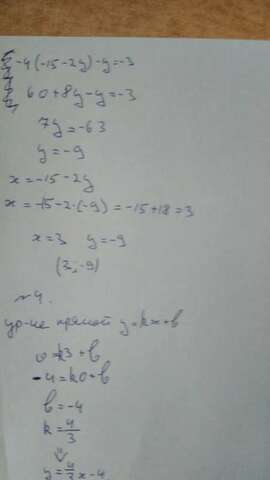 -4(-15-2y)-y=-3
60+8y-y=-3
7y=-63
y=-9
x=-15-2y
x=-15-2·(-9)=-15+18=3
x=3, y=-9
(3;-9)
№4.
ур-ие прямой y=kx+b
0=k3+b
-4=k0+b
b=-4
k=4/3
⇓
y=4/3x-4